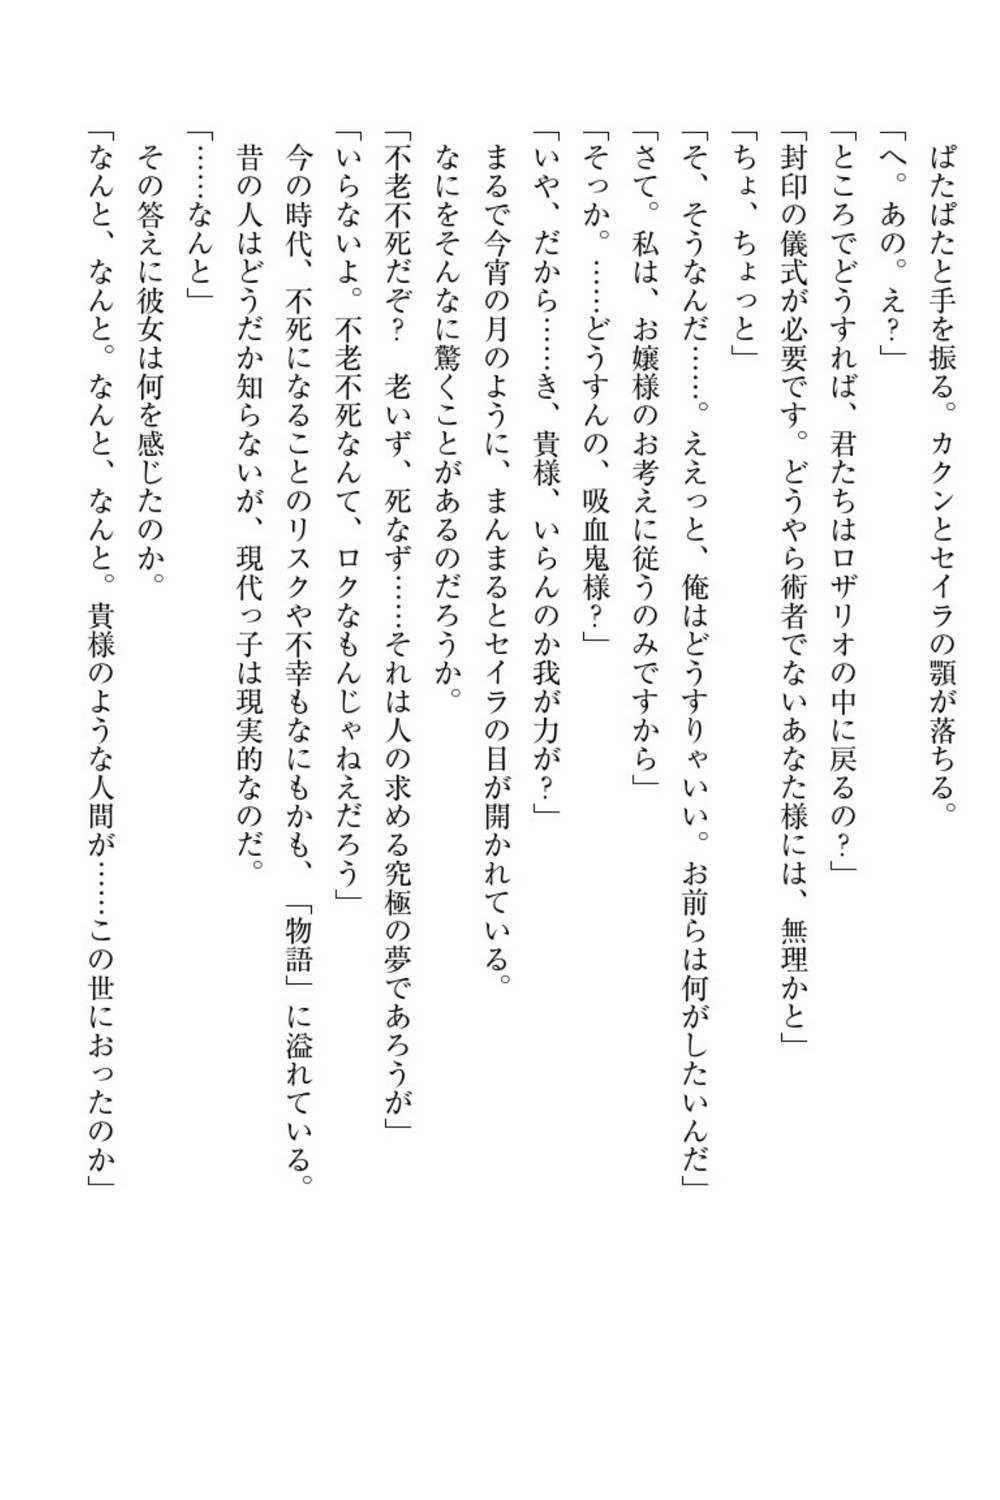 ぱたぱたと手を振る。カクンとセイラの顎が落ちる。
「へ。あの。え？」
「ところでどうすれば、君たちはロザリオの中に戻るの？」
「封印の儀式が必要です。どうやら術者でないあなた様には、無理かと」
「ちょ、ちょっと」
「そ、そうなんだ……。ええっと、俺はどうすりゃいい。お前らは何がしたいんだ」
「さて。私は、お嬢様のお考えに従うのみですから」
「そっか。……どうすんの、吸血鬼様？」
「いや、だから……き、貴様、いらんのか我が力が？」
まるで今宵の月のように、まんまるとセイラの目が開かれている。
なにをそんなに驚くことがあるのだろうか。
「不老不死だぞ？　老いず、死なず……それは人の求める究極の夢であろうが」
「いらないよ。不老不死なんて、ロクなもんじゃねえだろう」
今の時代、不死になることのリスクや不幸もなにもかも、「物語」に溢れている。
昔の人はどうだか知らないが、現代っ子は現実的なのだ。
「……なんと」
その答えに彼女は何を感じたのか。
「なんと、なんと。なんと、なんと。貴様のような人間が……この世におったのか」